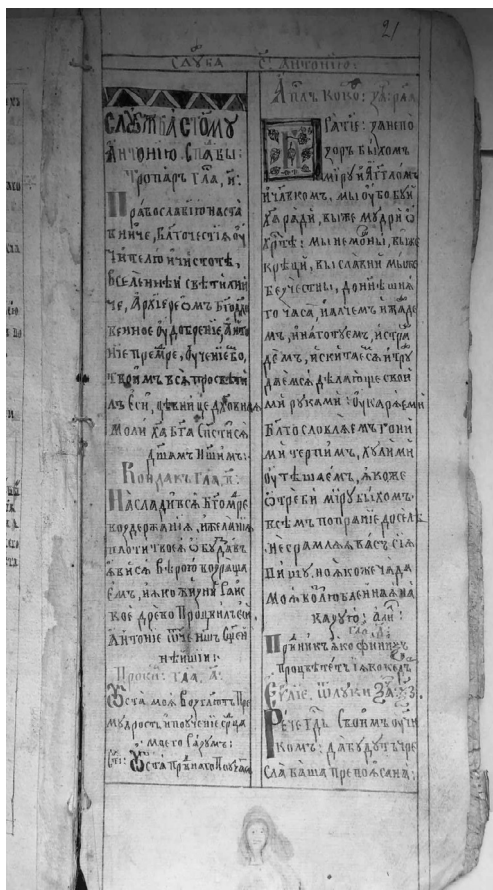 21
СЛУЖБА С: АНТОНІЮ:
СЛУЖБА СТОМУ
АНТОНІЮ. СПА ВЫ:
Тропарь гла, и:
Православїю наста
вниче, бл҃гочестїѧ ѹ
чителю и чистотѣ,
вселеннѣй свѣтилни
че, Архїереѡмъ б҃год
венное ѹдобренїе, Анто
нїе прем҃дре, ѹченїе
твоимъ всѧ просвѣти
лъ еси, цѣвнице д҃ховнаѧ
моли х҃а б҃га сп҃стисѧ
д҃шамъ н҃шим:
Кондакъ гла, и:
Насладивсѧ б҃гом҃дре
воздержанїѧ, и желанїѧ
плоти твоеѧ ѡбуздавъ
ѧвисѧ вѣрою возраща
емъ, и ѧко
кое древо процвилъ еси
Антонїе ѿче н҃шъ сщ҃ен
нѣйший:
Проки: гла, а:
Ѹста моѧ возглютъ пре
мудрость и поученїе срдца
моего разумъ:
Сти: Ѹста прв҃наго поучат
Ап҃лъ кокѡ:
Братїе:
зоръ быхомъ
миру и аггломъ
и чл҃вкомъ. мы ѹбо буи
х҃а ради, вы же мудри ѡ
хр҃тѣ: мы немощны, вы же
крѣпци, вы славни мы же
безчестны, до ннѣшнѧ
го часа, и алчемъ и жажде
мъ, и наготуемъ, и стра
демъ, и скитаемсѧ и тру
ждаемсѧ дѣлающе свои
ми руками: ѹкарѧеми
бл҃гословлѧемъ гони
ми терпимъ, хулими
ѹтѣшаемсѧ, ѧкоже
ѿреби міру быхомъ
всѣмъ попранїе доселѣ
не срамлѧѧ васъ сїѧ
пишу, но ѧкоже чада
моѧ возлюбленнаѧ на
казую: али:
Првникъ ѧко финикъ
процвѣтетъ и ѧко кедръ
Еѵ҃лїе, ѿ луки за ѯз.
Рече гдь своимъ ѹчни
комъ: да будутъ чре
сла ваша препоѧсана: